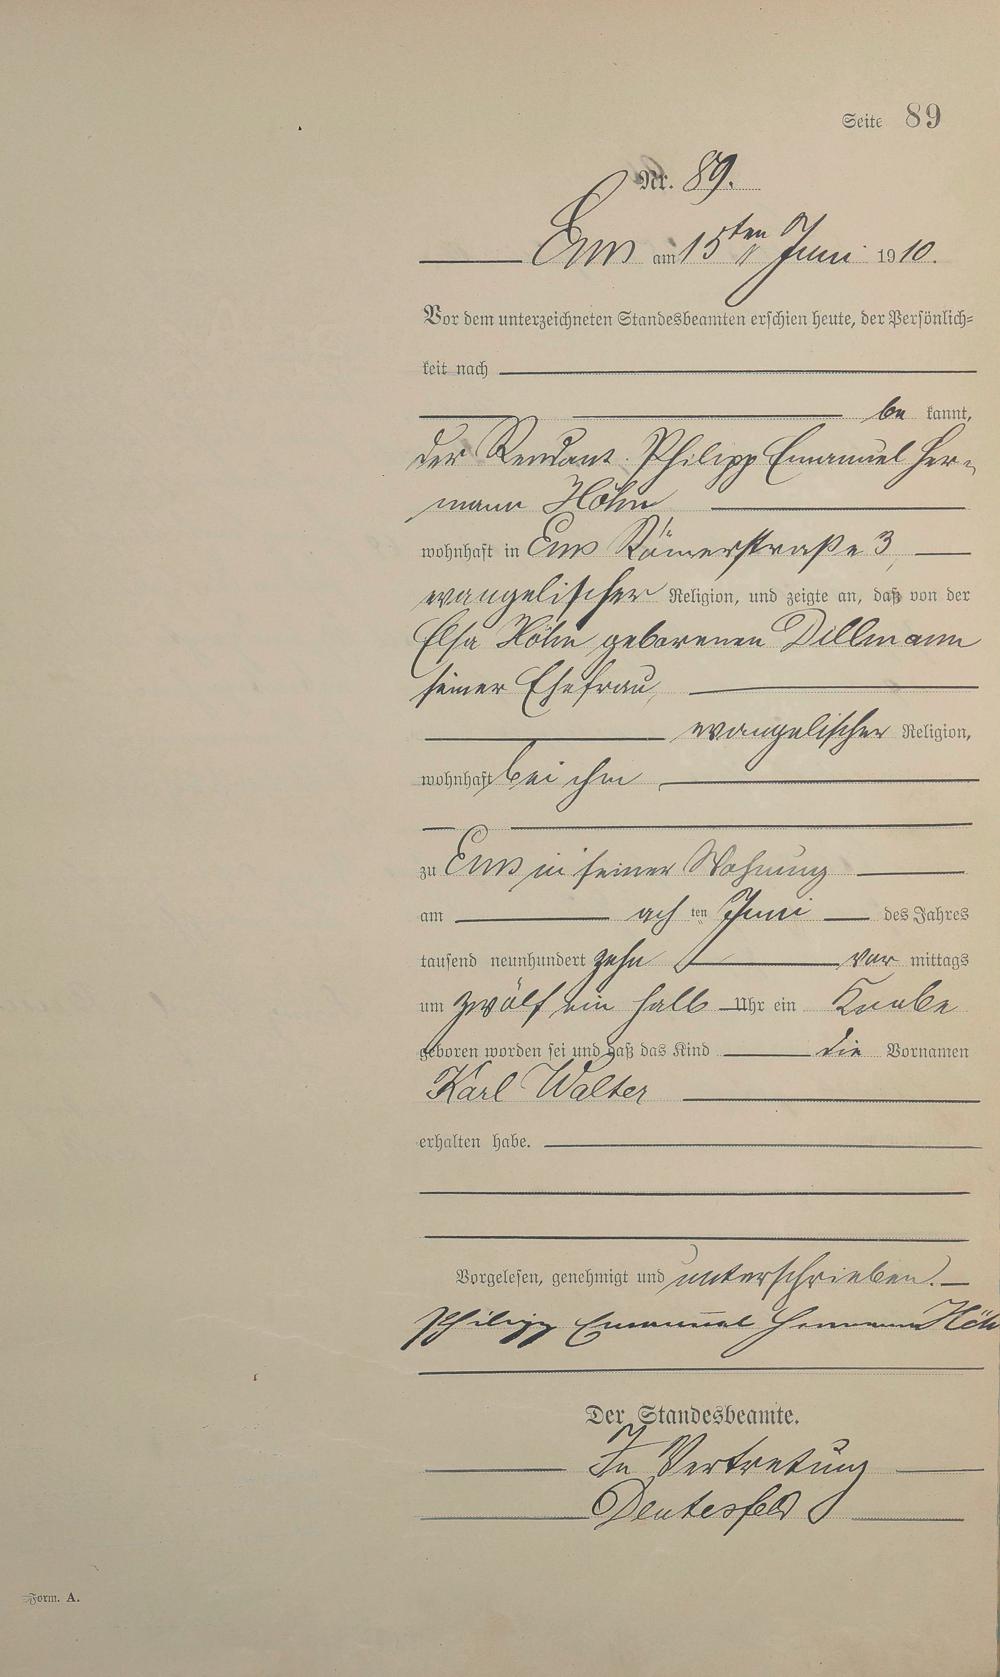 Seite 89
Nr. 89.
Ems am 15ten Juni 1910.
Vor dem unterzeichneten Standesbeamten erschien heute, der Persönlich=
keit nach
be kannt,
der Rendant Philipp Emanuel Her-
mann Höhn
wohnhaft in Ems Römerstraße 3,
evangelischer Religion, und zeigte an, daß von der
Elsa Höhn geborenen Dillmann
seiner Ehefrau,
evangelischer Religion,
wohnhaft bei ihm
zu Ems in seiner Wohnung
am ach ten Juni des Jahres
tausend neunhundert zehn vor mittags
um zwölf ein halb Uhr ein Knabe
geboren worden sei und daß das Kind die Vornamen
Karl Walter
erhalten habe.
Vorgelesen, genehmigt und unterschrieben.
Philipp Emanuel Hermann Höhn
Der Standesbeamte.
In Vertretung
Deutesfeld
Form. A.